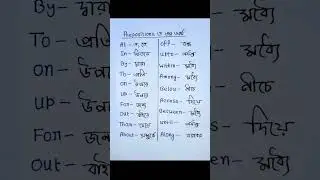 Prepositions ও এর অর্থ
At - এ, তে
In - ভিতরে
By - দ্বারা
To - প্রতি
on - উপরে
up - উপরে
Fon - জন্য
Out - বাইরে
Than - চেয়ে
About - সম্পর্কে
off - বন্ধ
within - মধ্যে
Among - মধ্যে
Below - নীচে
Across - দিয়ে
Between - মধ্যে
until -
Along -
By - দ্বারা
To - প্রতি
on - উপরে
up - উপরে
Fon - জন্য
Out - বাই
মধ্যে
মধ্যে
নীচে
দিয়ে
- মধ্যে